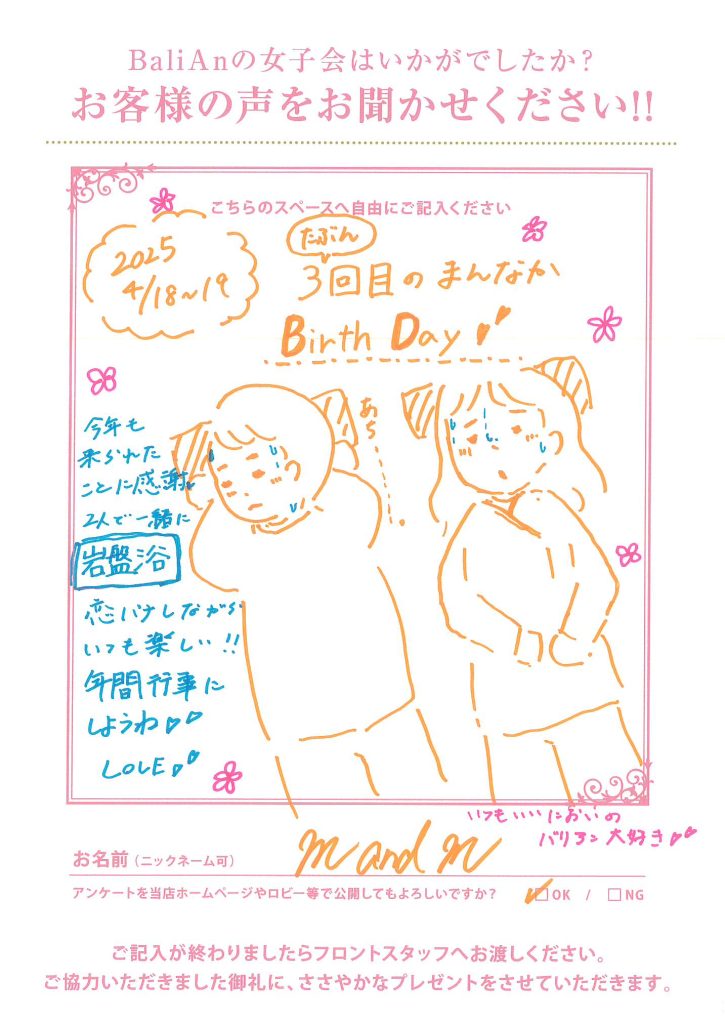 BaliAnの女子会はいかがでしたか?
お客様の声をお聞かせください!!
こちらのスペースへ自由にご記入ください
2025
4/18~19
たぶん
3回目のまんなか
Birth Day
あち
今年も
来られた
ことに感謝
2人で一緒に
岩盤浴
恋バナしながら
いつも楽しい!!
年間行事に
しようわ
LOVE
いつもいいにおいの
バリアン大好き
お名前(ニックネーム可)
m and m
アンケートを当店ホームページやロビー等で公開してもよろしいですか? OK / NG
ご記入が終わりましたらフロントスタッフへお渡しください。
ご協力いただきました御礼に、ささやかなプレゼントをさせていただきます。